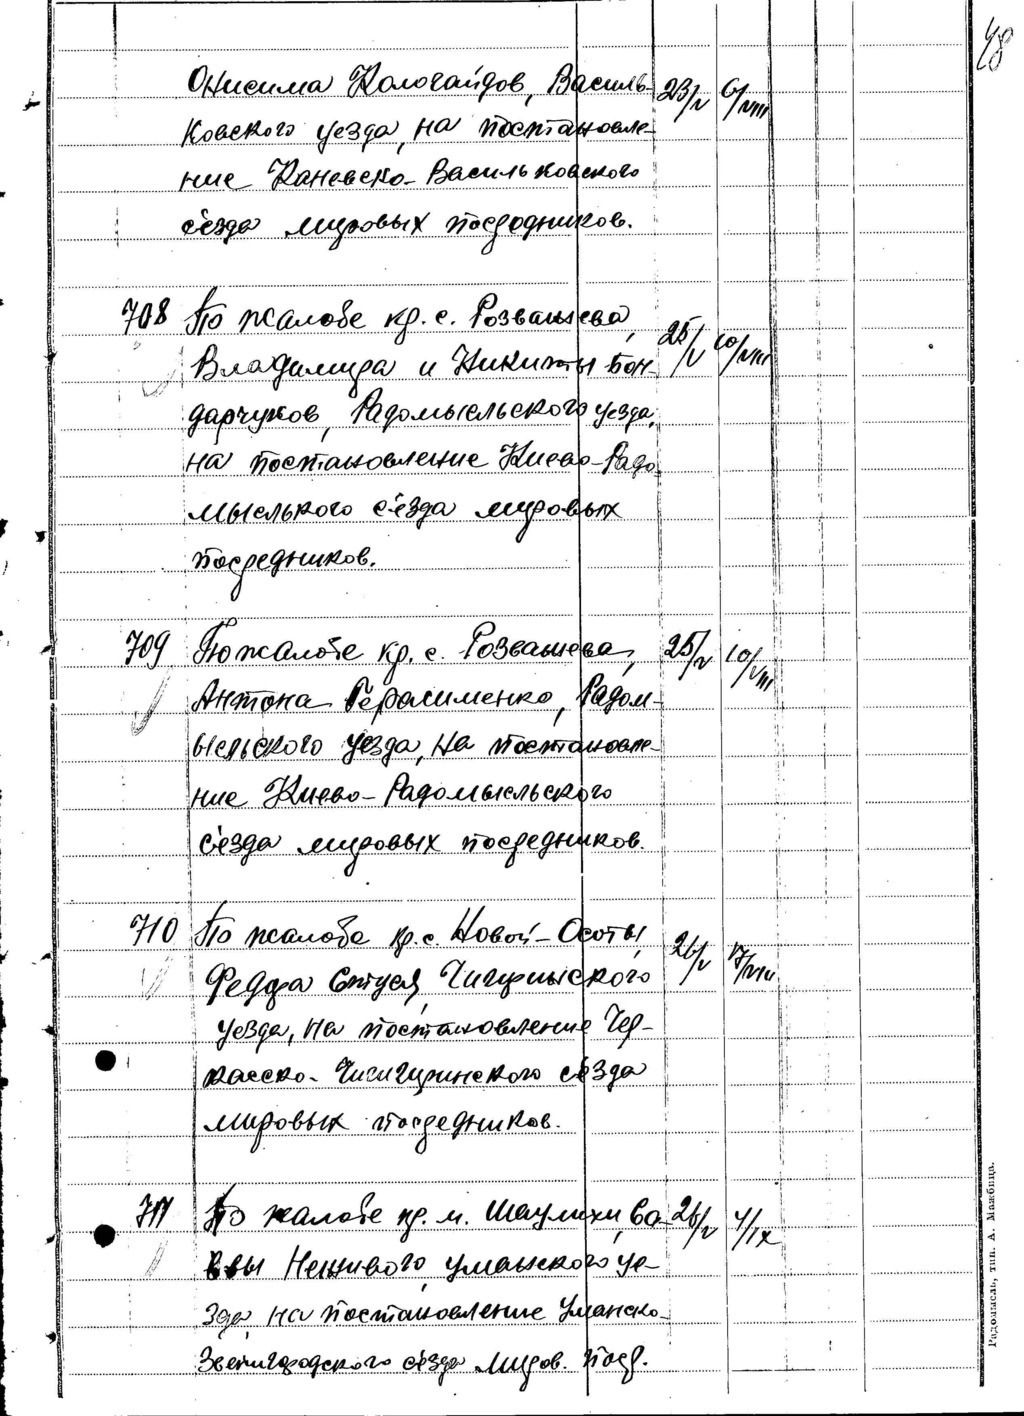 48
Онисима Кологайдов, Василь- 23/V 6/VIII
ковского уезда, на постановле-
ние Каневско-Васильковского
съезда мировых посредников.
708 По жалобе кр. с. Розважева,
Владимира и Никиты Бон- 25/V 10/VIII
дарчуков, Радомысльского уезда,
на постановление Киево-Радо
мыслького съезда мировых
посредников.
709 По жалобе кр. с. Розважева, 25/V 10/VIII
Антона Герасименко, Радом-
ысльского уезда, на постановле-
ние Киево-Радомысльского
съезда мировых посредников.
710 По жалобе кр. с. Новой-Осоты, 26/V 17/VIII
Федора Стуся, Чигиринского
уезда, на постановление Чер-
касско-Чигиринского съезда
мировых посредников.
711 По жалобе кр. м. Шаулихи, Са- 26/V 4/IX
ввы Неживого, уманского уе-
зда, на постановление Уманско-
Звенигородского съезда миров. поср.
Радомысль, тип. А. Мажбица.